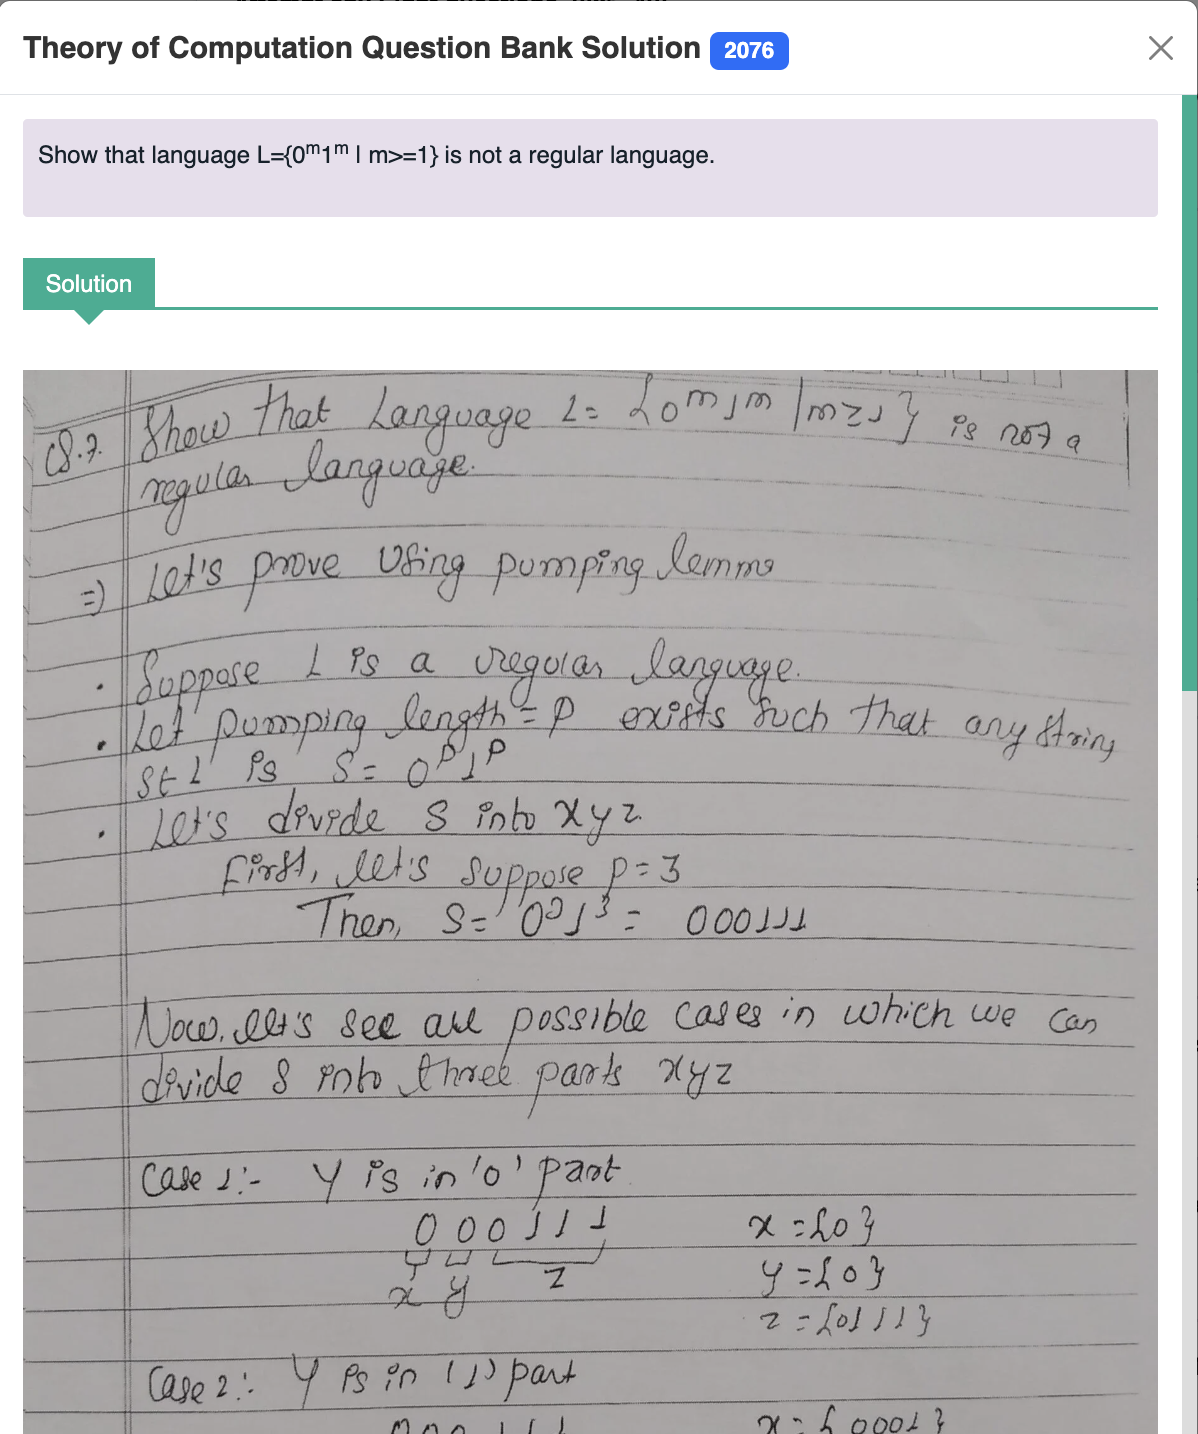 Theory of Computation Question Bank Solution 2076
Show that language L={0ᵐ1ᵐ | m>=1} is not a regular language.
Solution
Q.7. Show that Language L= {0ᵐ1ᵐ | m≥1} is not a
regular language.
=> Let's prove Using pumping lemma
• Suppose L is a regular language.
• Let pumping length = P exists such that any string
S∈L is S = 0ᴾ1ᴾ
• Let's divide S into xyz
First, let's suppose p=3
Then, S= 0³1³ = 000111
Now, let's see all possible cases in which we can
divide S into three parts xyz
Case 1:- Y is in '0' part
000111 x={0}
x y z y={0}
z={0111}
Case 2:- Y is in '1' part
000111 x={0001}